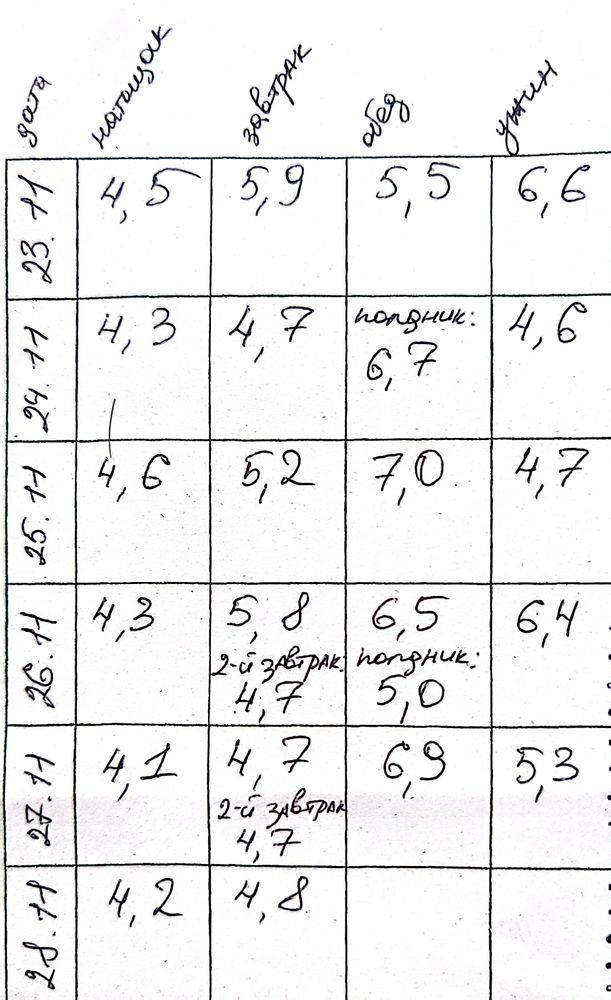 дата натощак завтрак обед ужин
23.11 4,5 5,9 5,5 6,6
24.11 4,3 4,7 полдник: 6,7 4,6
25.11 4,6 5,2 7,0 4,7
26.11 4,3 5,8 6,5 6,4
2-й завтрак: полдник:
4,7 5,0
27.11 4,1 4,7 6,9 5,3
2-й завтрак
4,7
28.11 4,2 4,8